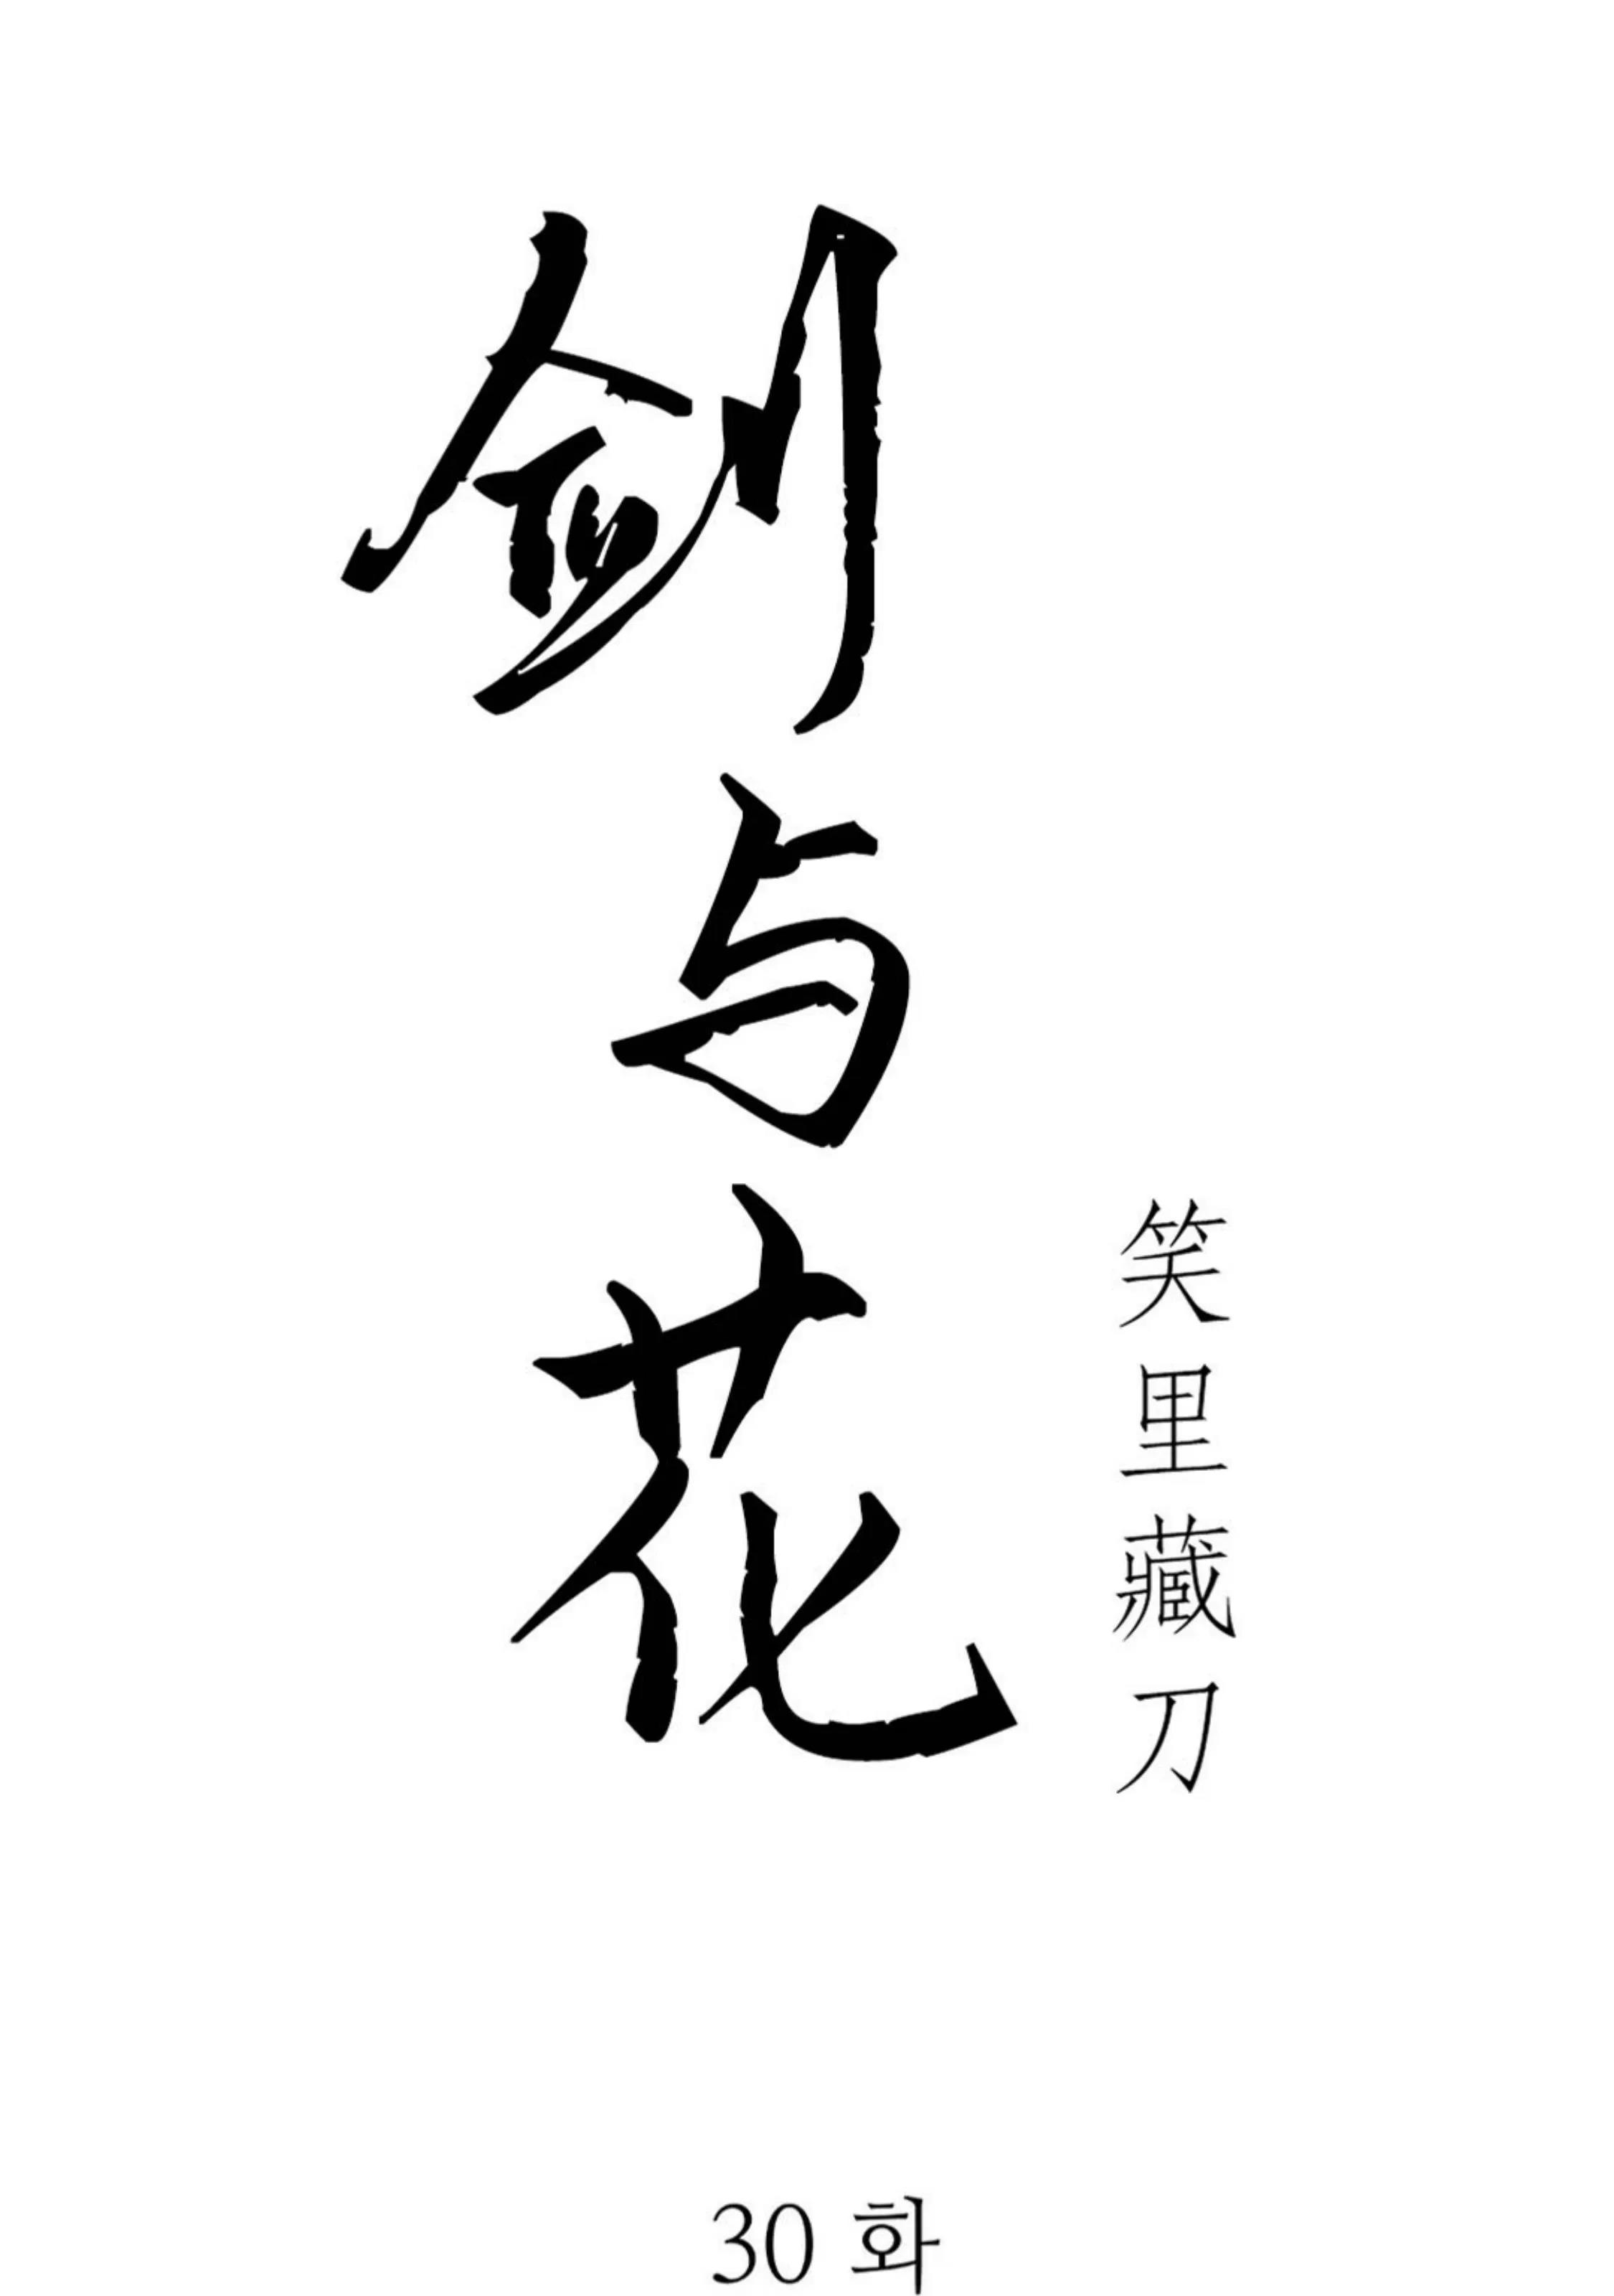 剑与花
笑里藏刀
30 화